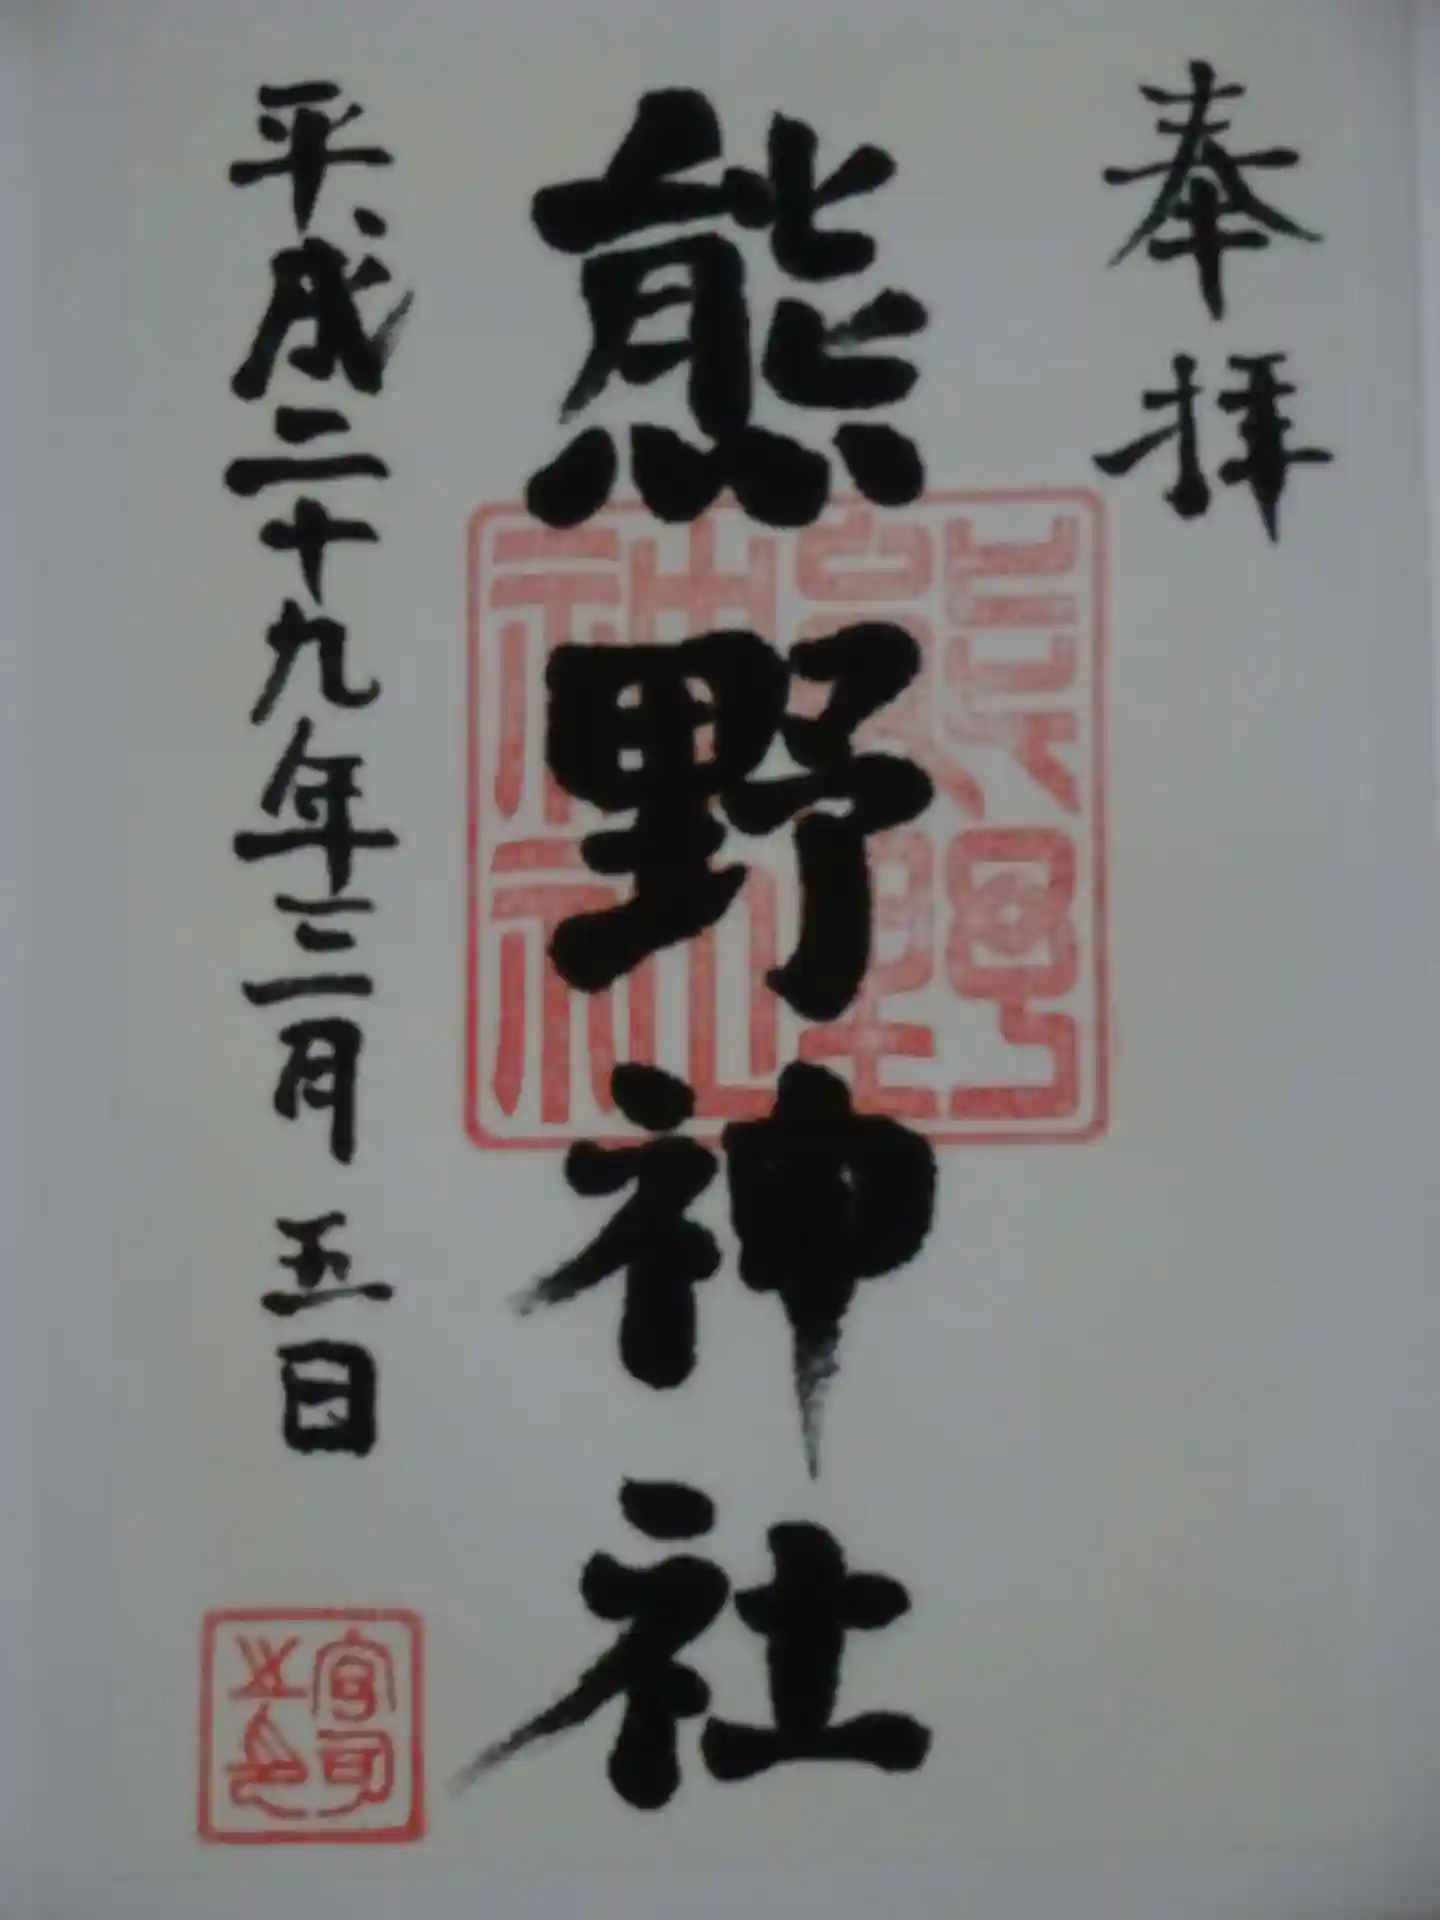 奉拝
熊野神社
熊野
神社
平成二十九年三月五日
宮司
之印